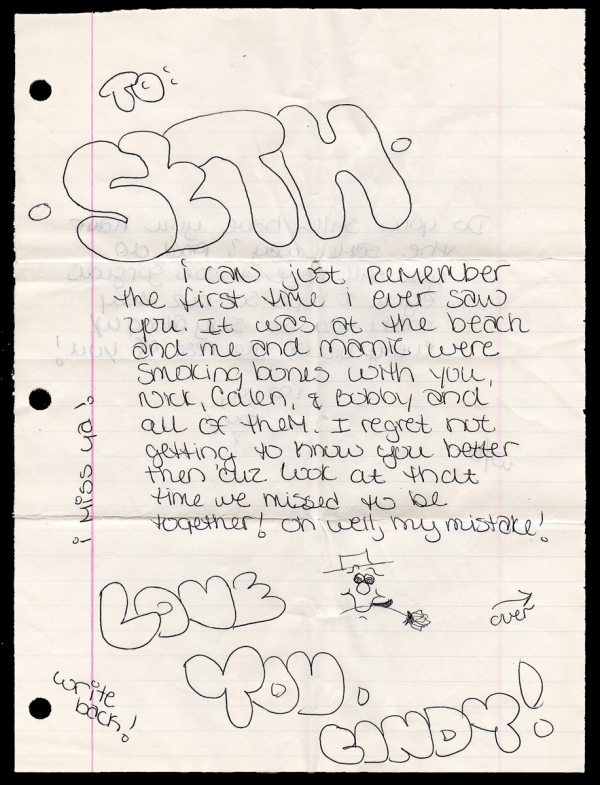 TO:
SETH
i can just remember
the first time i ever saw
you. It was at the beach
and me and marnie were
smoking bones with you,
Nick, Calen, & Bobby and
all of them. I regret not
getting to know you better
then 'cuz look at that
time we missed to be
together! oh well, my mistake!
i miss ya!
LOVE
YOU,
CINDY!
over
write
back!